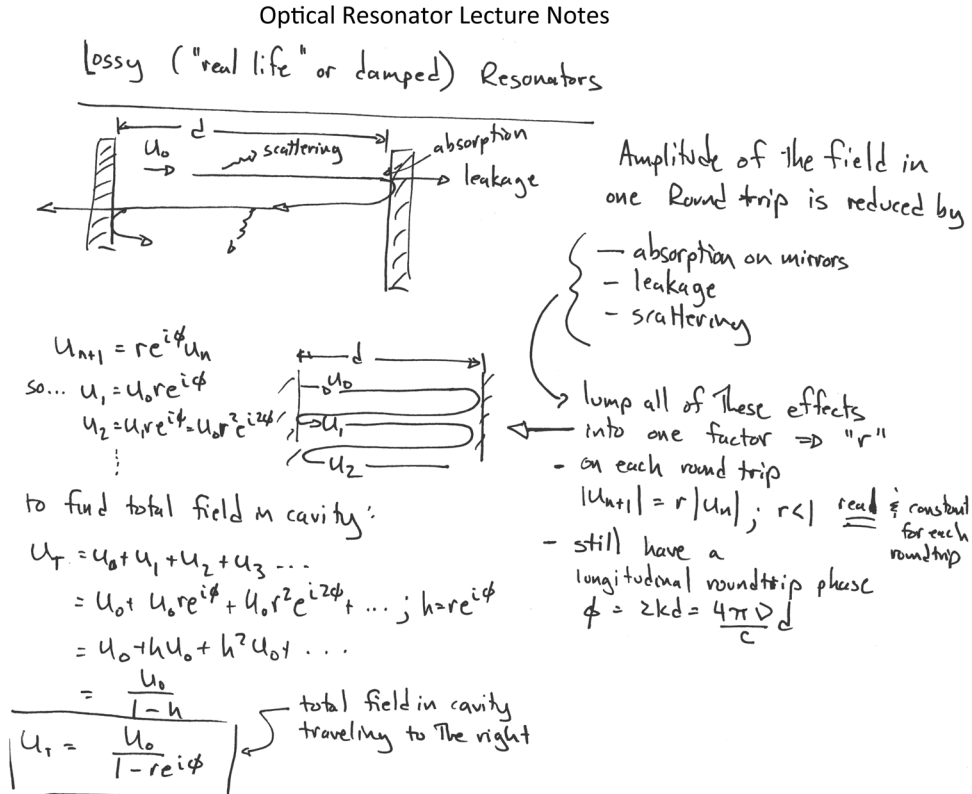 Optical Resonator Lecture Notes
Lossy ("real life" or damped) Resonators
d
U₀
scattering
absorption
leakage
Amplitude of the field in
one Round trip is reduced by
– absorption on mirrors
– leakage
– scattering
Uₙ₊₁ = re^{iϕ}Uₙ
so... U₁ = U₀re^{iϕ}
U₂ = U₁re^{iϕ} = U₀r²e^{i2ϕ}
⋮
d
U₀
U₁
U₂
lump all of These effects
into one factor ⇒ "r"
- on each round trip
|Uₙ₊₁| = r|Uₙ| ; r<1 real & constant
for each
roundtrip
- still have a
longitudinal roundtrip phase
ϕ = 2kd = 4πν/c d
to find total field in cavity:
U_T = U₀ + U₁ + U₂ + U₃ ...
= U₀ + U₀re^{iϕ} + U₀r²e^{i2ϕ} + ... ; h=re^{iϕ}
= U₀ + hU₀ + h²U₀ + ...
= U₀/(1-h)
U_T = U₀/(1-re^{iϕ})
total field in cavity
traveling to The right